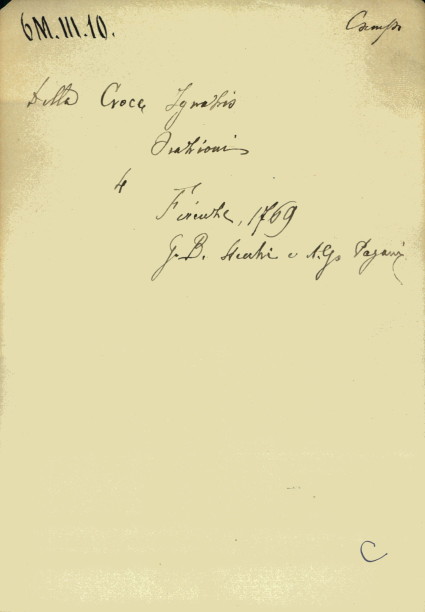 6M.III.10.
Della Croce Ignazio
Orazioni
4
Firenze, 1769
G. B. Stecchi e A. G. Pagani
C